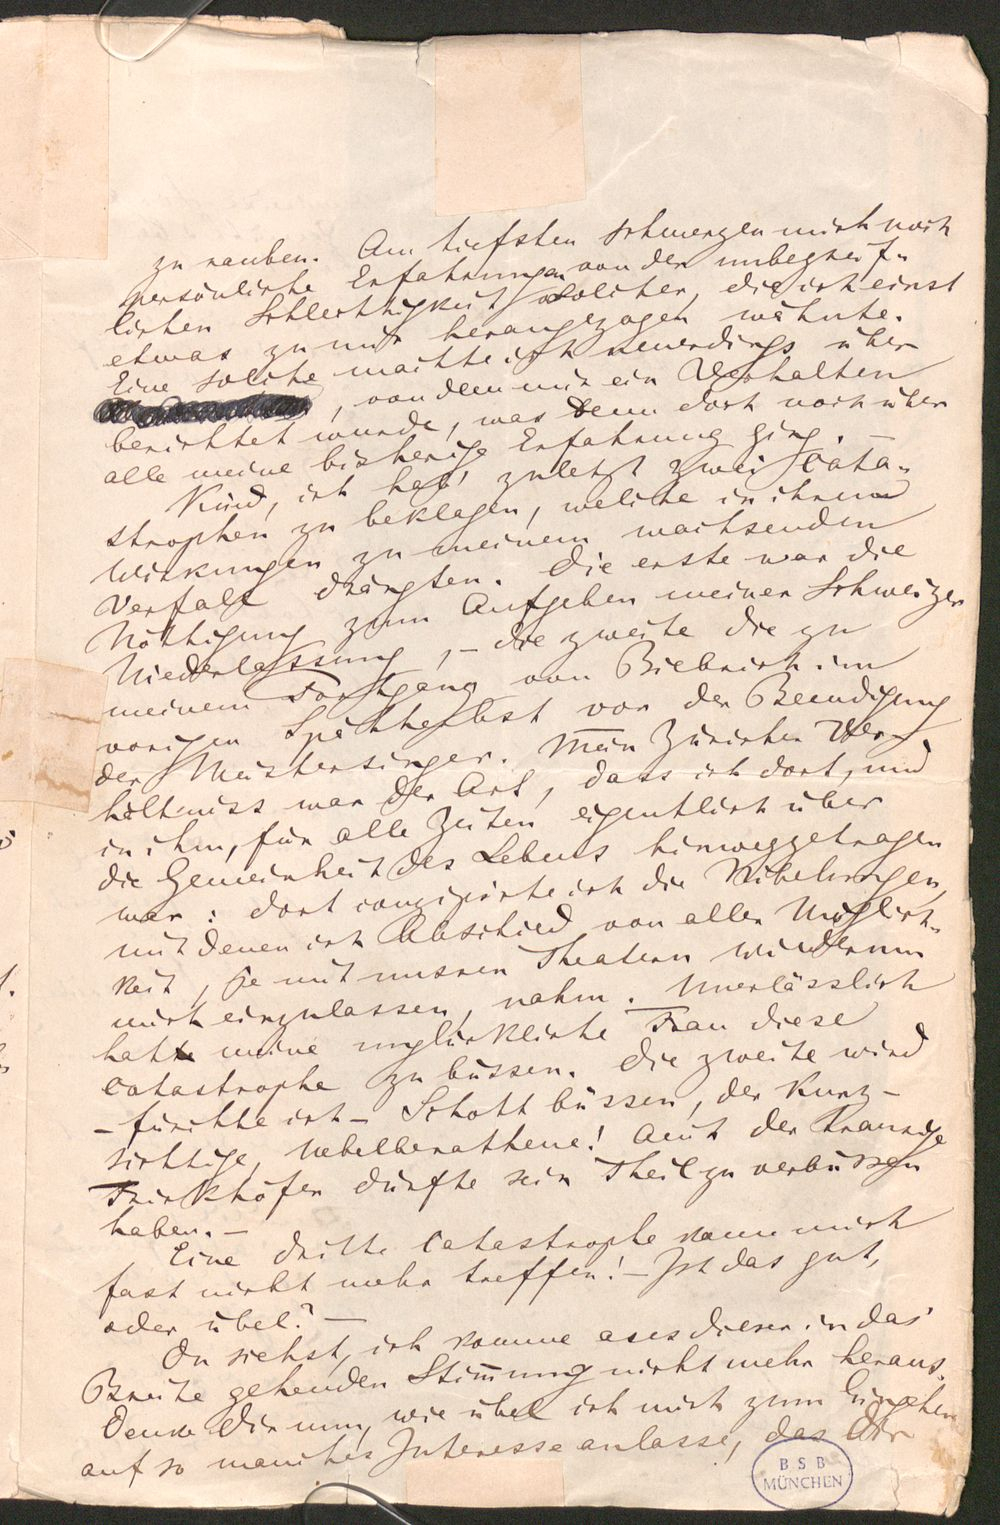 zu rauben. Am tiefsten schmerzen mich noch
persönliche Erfahrungen von der unbegreif-
lichen Schlechtigkeit solcher, die ich einst
etwas zu mir herangezogen wähnte.
Eine solche machte ich neuerdings über
, von dem mir ein Verhalten
berichtet wurde, was denn doch noch über
alle meine bisherige Erfahrung ging. —
Kind, ich hab' zuletzt zwei Cata-
strophen zu beklagen, welche in ihren
Wirkungen zu meinem wachsenden
Verfall drängten. Die erste war die
Nöthigung zum Aufgeben meiner Schweizer
Niederlassung, – die zweite die zu
meinem Fortgang von Biebrich im
vorigen Spätherbst vor der Beendigung
der Meistersinger. Mein Züricher Ver-
hältniss war der Art, dass ich dort, und
in ihm, für alle Zeiten eigentlich über
die Gemeinheit des Lebens hinweggetragen
war: dort concipirte ich die Nibelungen,
mit denen ich Abschied von aller Möglich-
keit, je mit unsren Theatern wiederum
mich einzulassen, nahm. Unerlässlich
hatte meine unglückliche Frau diese
Catastrophe zu büssen. Die zweite wird
– fürchte ich – Schott büssen, der Kurz-
sichtige, Uebelberathene! Auch der traurige
Trinkhöfer dürfte sein Theil zu verbüssen
haben. –
Eine dritte Catastrophe kann mich
fast nicht mehr treffen! – Ist das gut,
oder übel? —
Du siehst, ich komme aus dieser in das
Breite gehenden Stimmung nicht mehr heraus.
Denke Dir nun, wie übel ich mich zum Eingehen
auf so manches Interesse anlasse, das Dir
BSB
MÜNCHEN